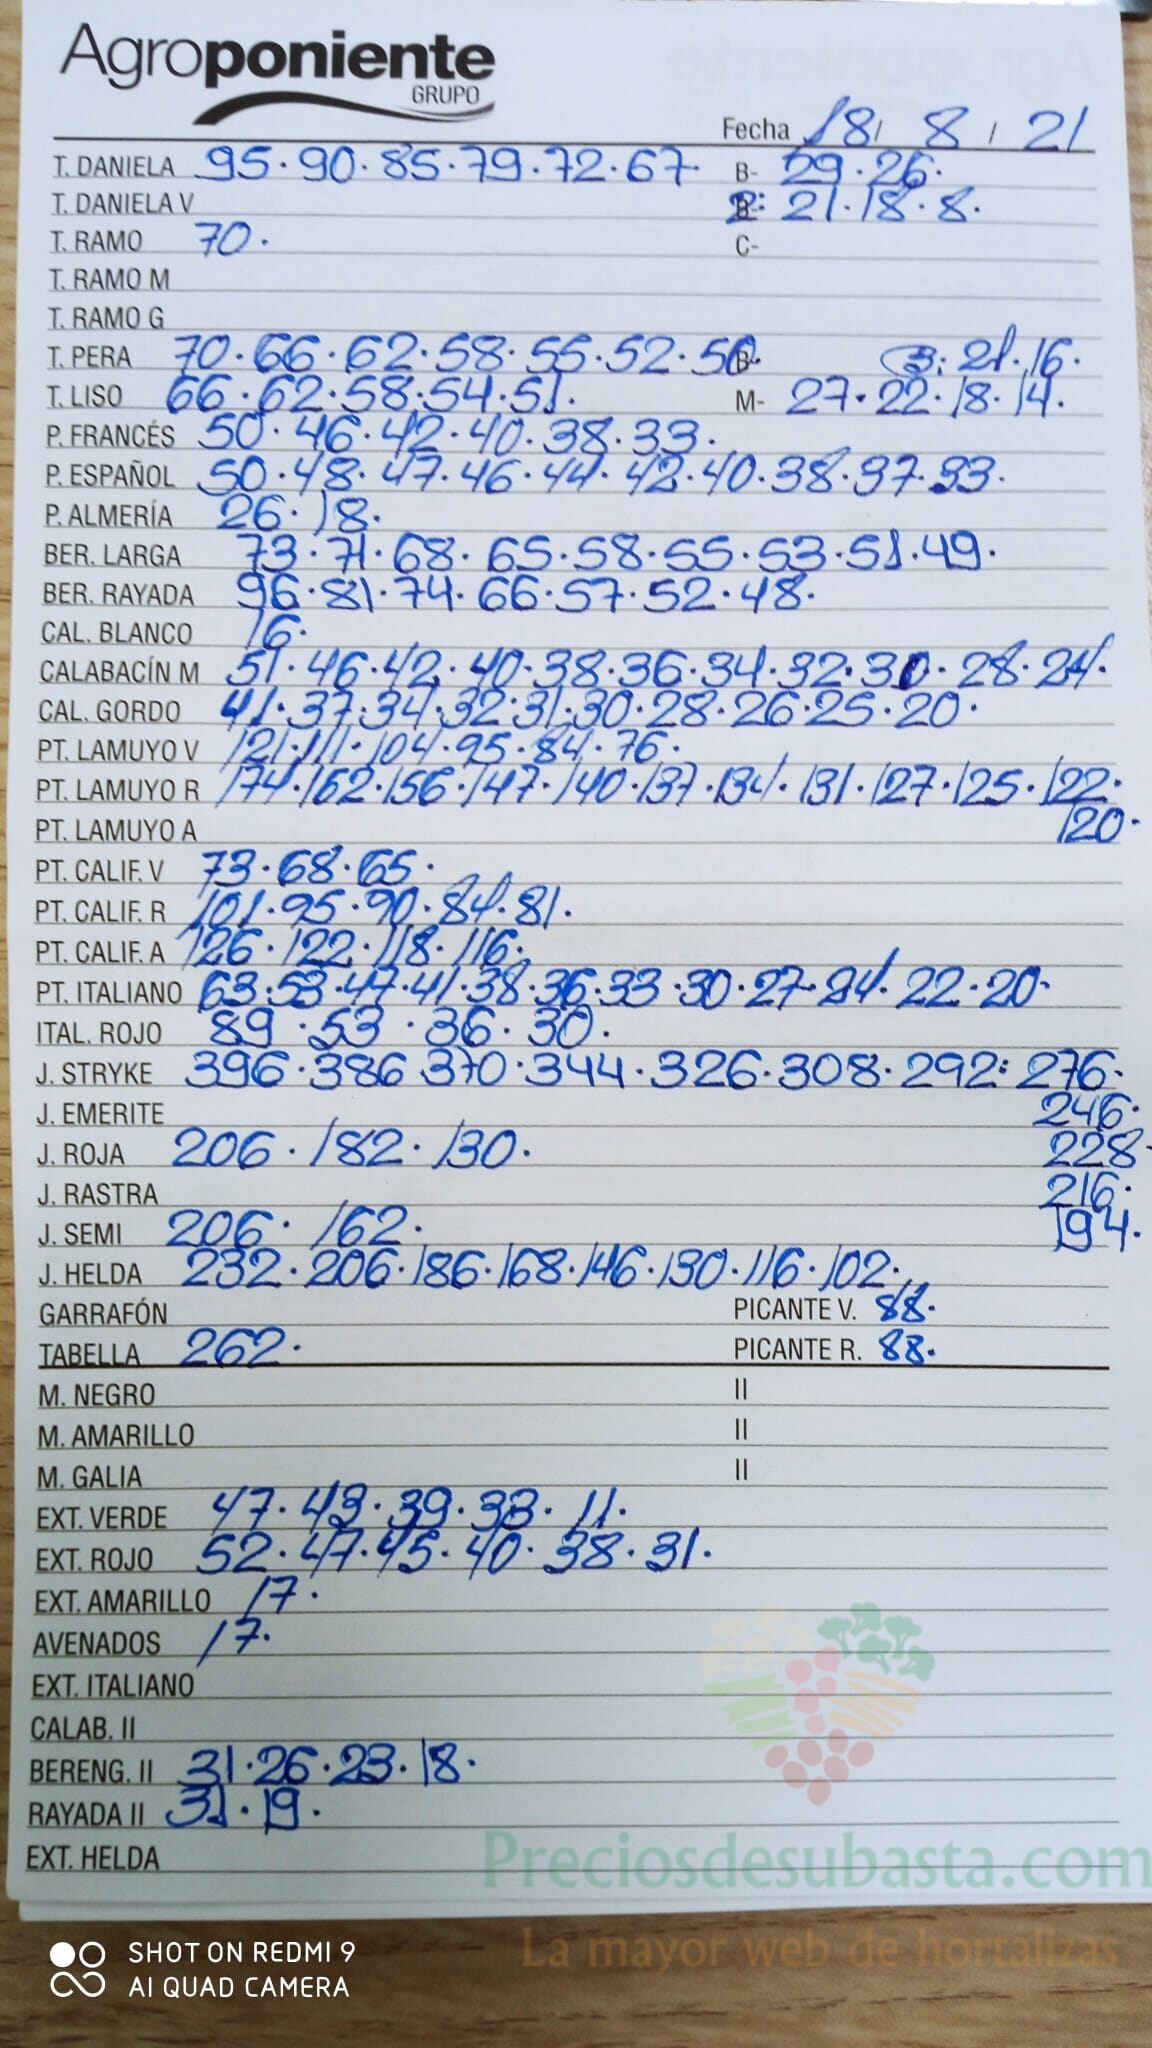 Agroponiente
GRUPO
Fecha 18/ 8 / 21
T. DANIELA 95·90·85·79·72·67 B- 29·26·
T. DANIELA V 2: 21·18·8·
T. RAMO 70· C-
T. RAMO M
T. RAMO G
T. PERA 70·66·62·58·55·52·50 B- 3: 21·16·
T. LISO 66·62·58·54·51· M- 27·22·18·14·
P. FRANCÉS 50·46·42·40·38·33·
P. ESPAÑOL 50·48·47·46·44·42·40·38·37·33·
P. ALMERÍA 26·18·
BER. LARGA 73·71·68·65·58·55·53·51·49·
BER. RAYADA 96·81·74·66·57·52·48·
CAL. BLANCO 16·
CALABACÍN M 51·46·42·40·38·36·34·32·30·28·24·
CAL. GORDO 41·37·34·32·31·30·28·26·25·20·
PT. LAMUYO V 121·111·104·95·84·76·
PT. LAMUYO R 174·162·156·147·140·137·134·131·127·125·122·
PT. LAMUYO A 120·
PT. CALIF. V 73·68·65·
PT. CALIF. R 101·95·90·84·81·
PT. CALIF. A 126·122·118·116·
PT. ITALIANO 63·53·47·41·38·36·33·30·27·24·22·20·
ITAL. ROJO 89·53·36·30·
J. STRYKE 396·386·370·344·326·308·292·276·
J. EMERITE 246·
J. ROJA 206·182·130· 228·
J. RASTRA 216·
J. SEMI 206·162· 194·
J. HELDA 232·206·186·168·146·130·116·102·
GARRAFÓN PICANTE V. 88·
TABELLA 262· PICANTE R. 88·
M. NEGRO II
M. AMARILLO II
M. GALIA II
EXT. VERDE 47·43·39·33·11·
EXT. ROJO 52·47·45·40·38·31·
EXT. AMARILLO 17·
AVENADOS 17·
EXT. ITALIANO
CALAB. II
BERENG. II 31·26·23·18·
RAYADA II 31·19·
EXT. HELDA
Preciosdesubasta.com
La mayor web de hortalizas
SHOT ON REDMI 9
AI QUAD CAMERA